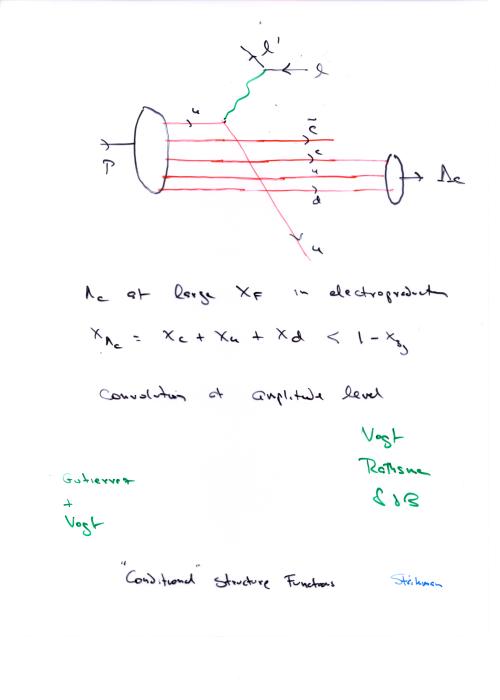 l'
l
u
c̄
P
c
u
d
Λc
u
Λc at large XF in electroproduction
xΛc = xc + xu + xd < 1 - xBj
Convolution at amplitude level
Vogt
SJB
Gutierrez
+
Vogt
"Conditional" Structure Functions
Strikman